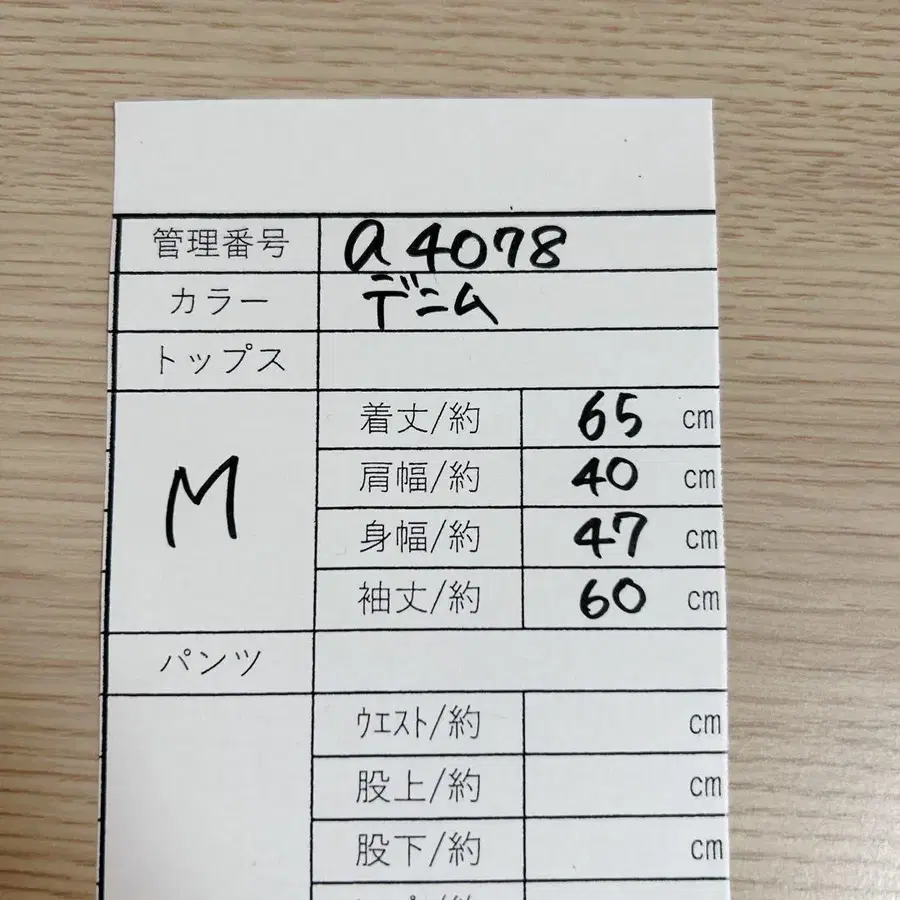 管理番号 a4078
カラー デニム
トップス
M
着丈/約 65 cm
肩幅/約 40 cm
身幅/約 47 cm
袖丈/約 60 cm
パンツ
ウエスト/約 cm
股上/約 cm
股下/約 cm